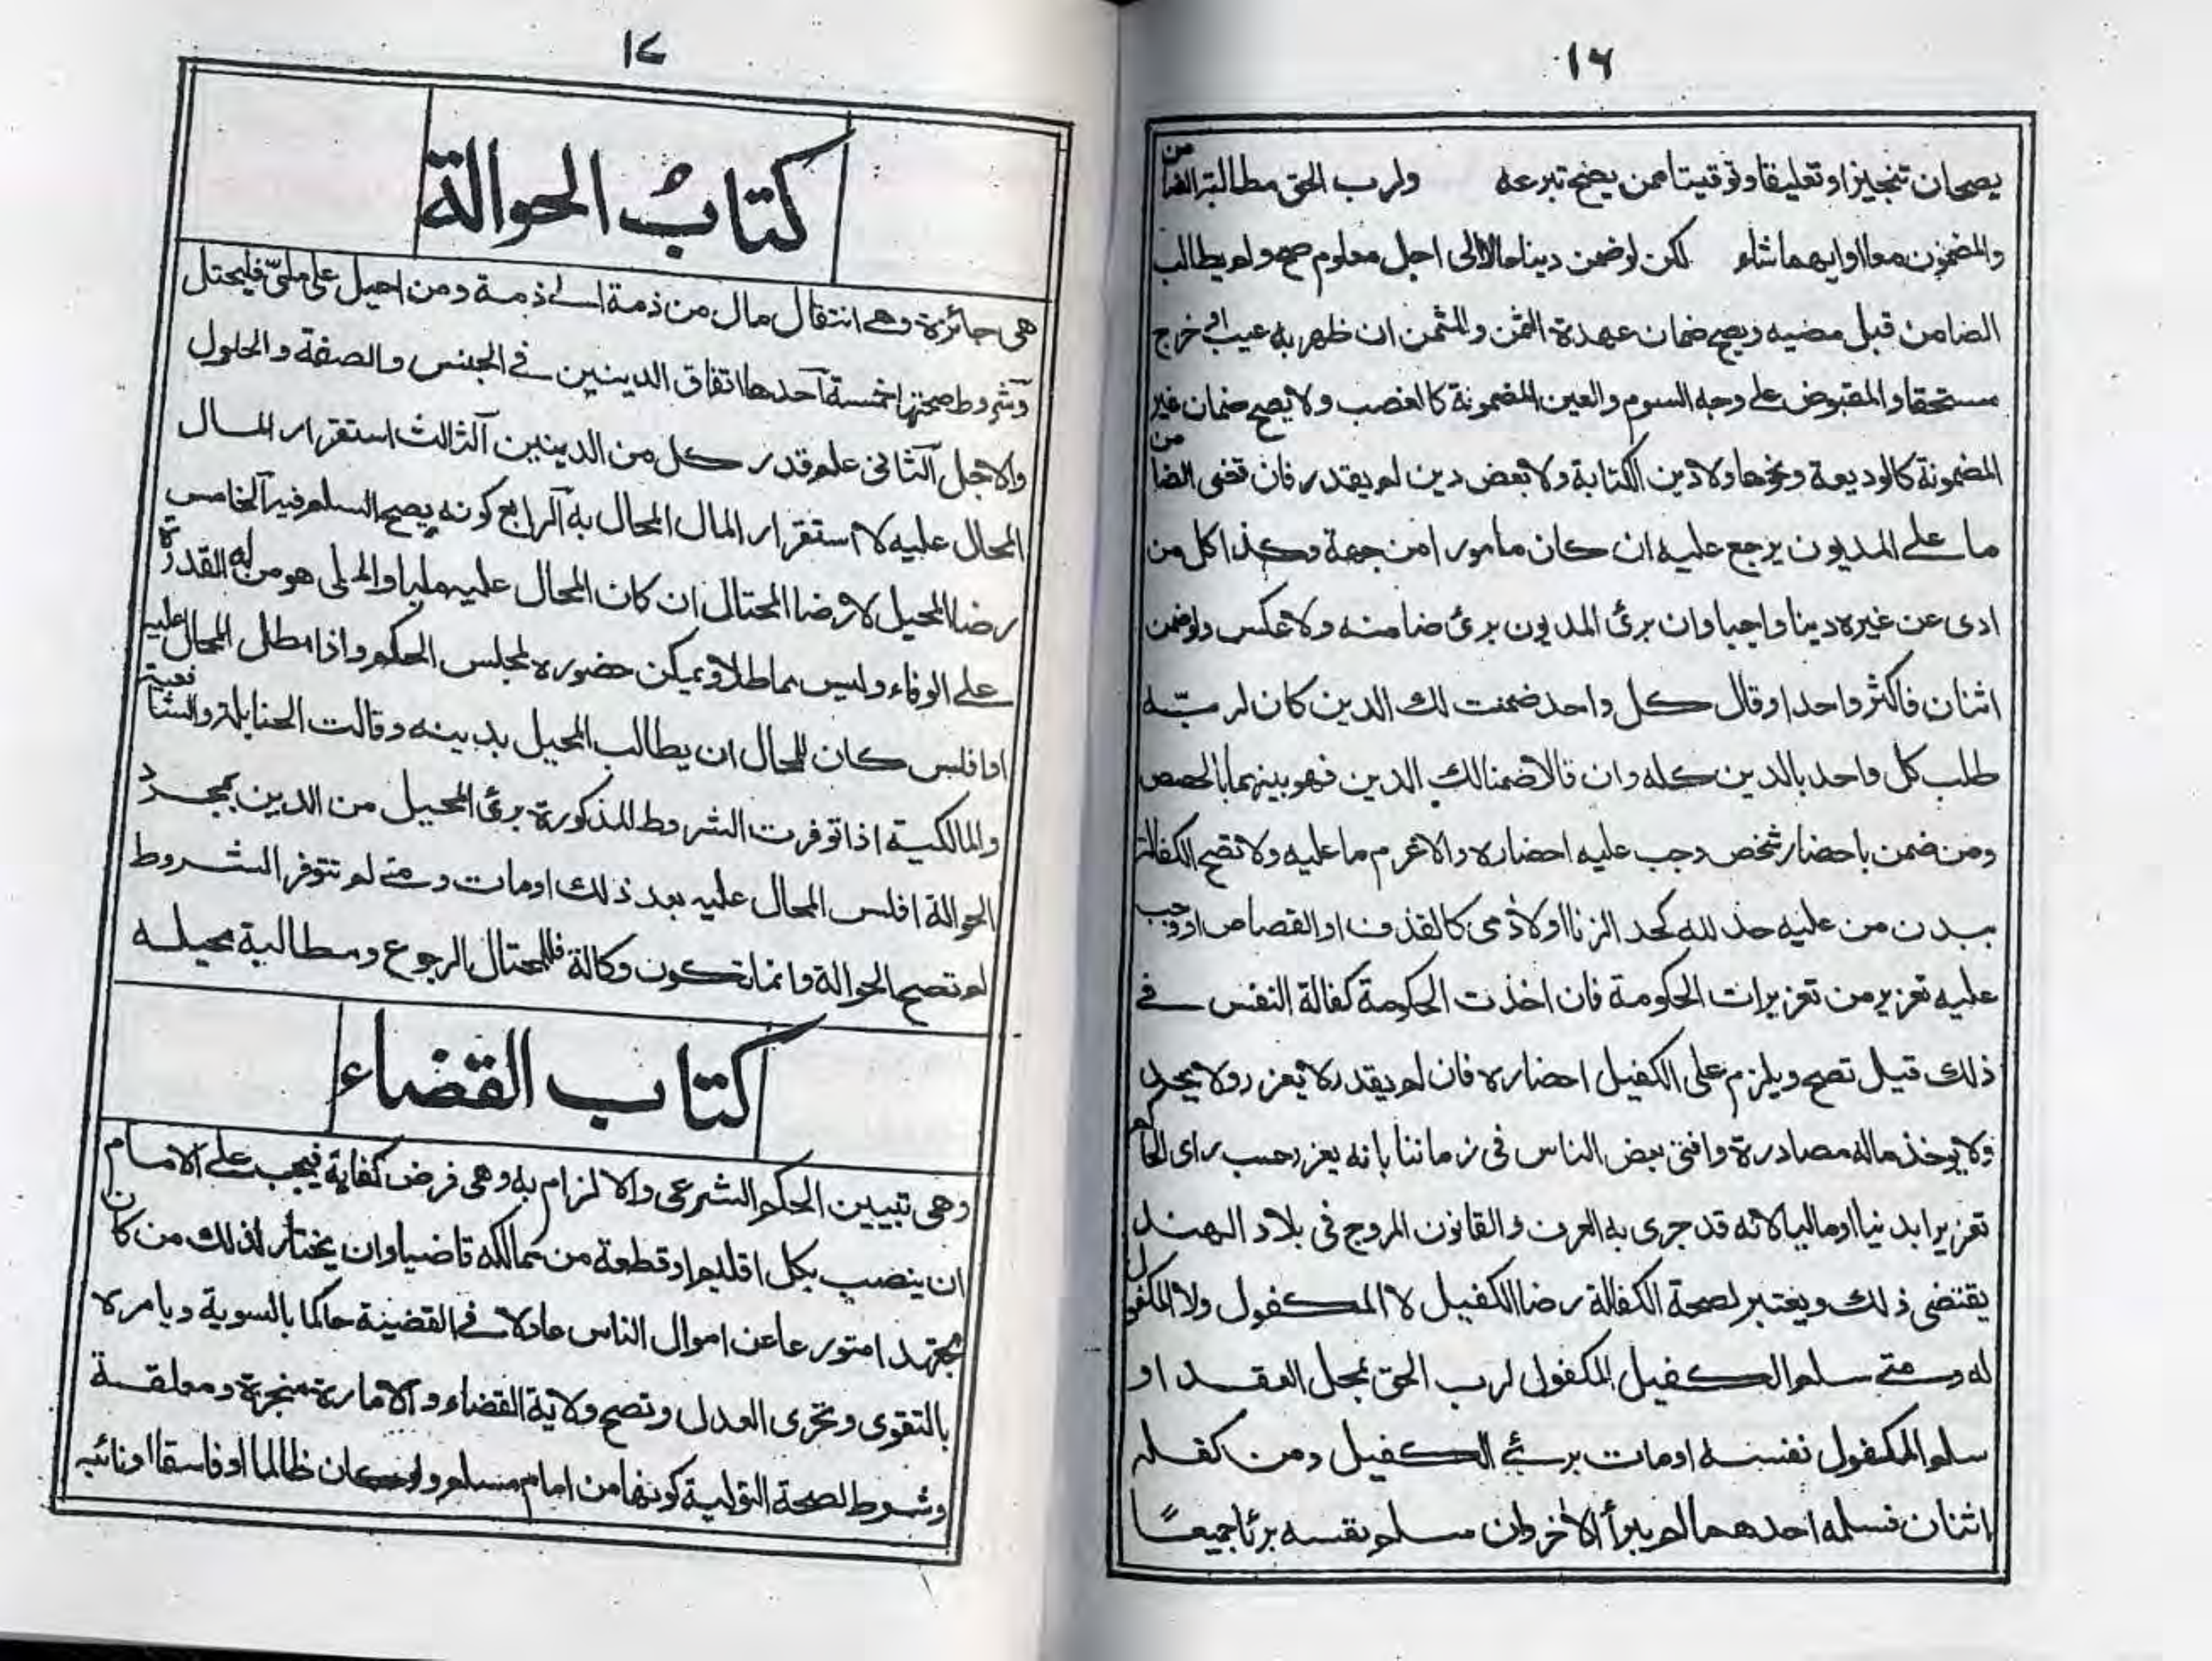 ١٦
يصحان تنجيزا وتعليقا وتوقيتا ممن يصح تبرعه ولرب الحق مطالبة الضامن
والمضمون معا او ايهما شاء لكن لو ضمن دينا حالا الى اجل معلوم صح ولم يطالب
الضامن قبل مضيه ويصح ضمان عهدة الثمن والمثمن ان ظهر به عيب او خرج
مستحقا والمقبوض على وجه السوم والعين المضمونة كالغصب ولا يصح ضمان غير
المضمونة كالوديعة ونحوها ولا دين الكتابة ولا بعض دين لم يقدر فان قضى الضامن
ما على المديون يرجع عليه ان كان مامورا من جهة وكذا كل من
ادى عن غيره دينا واجبا وان برئ المديون برئ ضامنه ولا عكس ولو ضمن
اثنان فاكثر واحدا وقال كل واحد ضمنت لك الدين كان لربّه
طلب كل واحد بالدين كله وان قالا ضمنا لك الدين فهو بينهما بالحصص
ومن ضمن باحضار شخص وجب عليه احضاره والا غرم ما عليه ولا تصح الكفالة
ببدن من عليه حد لله كحد الزنا اولادمى كالقذف او القصاص او وجب
عليه تعزير من تعزيرات الحكومة فان اخذت الحكومة كفالة النفس في
ذلك قيل تصح ويلزم على الكفيل احضاره فان لم يقدر لا يعزر ولا يحبس
ولا يوخذ ماله مصادرة وافتى بعض الناس فى زماننا بانه يعزر حسب راى الحاكم
تعزيرا بدنيا او ماليا لانه قد جرى به العرف والقانون المروج فى بلاد الهند
يقتضى ذلك ويعتبر لصحة الكفالة رضا الكفيل لا المكفول ولا المكفول
له ومتى سلم الكفيل المكفول لرب الحق بمحل العقد او
سلم المكفول نفسه او مات برئ الكفيل ومن كفله
اثنان فسلمه احدهما لم يبرأ الآخر وان سلم نفسه برئا جميعًا
١٧
كتابُ الحوالة
هى جائزة وهي انتقال مال من ذمة الى ذمة ومن احيل على ملىّ فليحتل
وشروط صحتها خمسة آحدها اتفاق الدينين في الجنس والصفة والحلول
والاجل آلثانى علم قدر كل من الدينين آلثالث استقرار المال
المحال عليه لا استقرار المال المحال به آلرابع كونه يصح السلم فيه آلخامس
رضا المحيل لا رضا المحتال ان كان المحال عليه مليا والملى هو من له القدرة
على الوفاء وليس مماطلا ويمكن حضوره لمجلس الحكم واذا مطل المحال عليه
او افلس كان للمحال ان يطالب المحيل بدينه وقالت الحنابلة والشافعية
والمالكية اذا توفرت الشروط المذكورة برئ المحيل من الدين بمجرد
الحوالة افلس المحال عليه بعد ذلك او مات ومتى لم تتوفر الشروط
لم تصح الحوالة وانما تكون وكالة فللمحتال الرجوع ومطالبة محيله
كتاب القضاء
وهى تبيين الحكم الشرعى والالزام به وهى فرض كفاية فيجب على الامام
ان ينصب بكل اقليم او قطعة من ممالكه قاضيا وان يختار لذلك من كان
مجتهدا متورعا عن اموال الناس عادلا في القضية حاكما بالسوية ويامره
بالتقوى وتحرى العدل وتصح ولاية القضاء والامارة منجزة ومعلقة
وشروط لصحة التولية كونها من امام مسلم ولو كان ظالما او فاسقا او نائبه